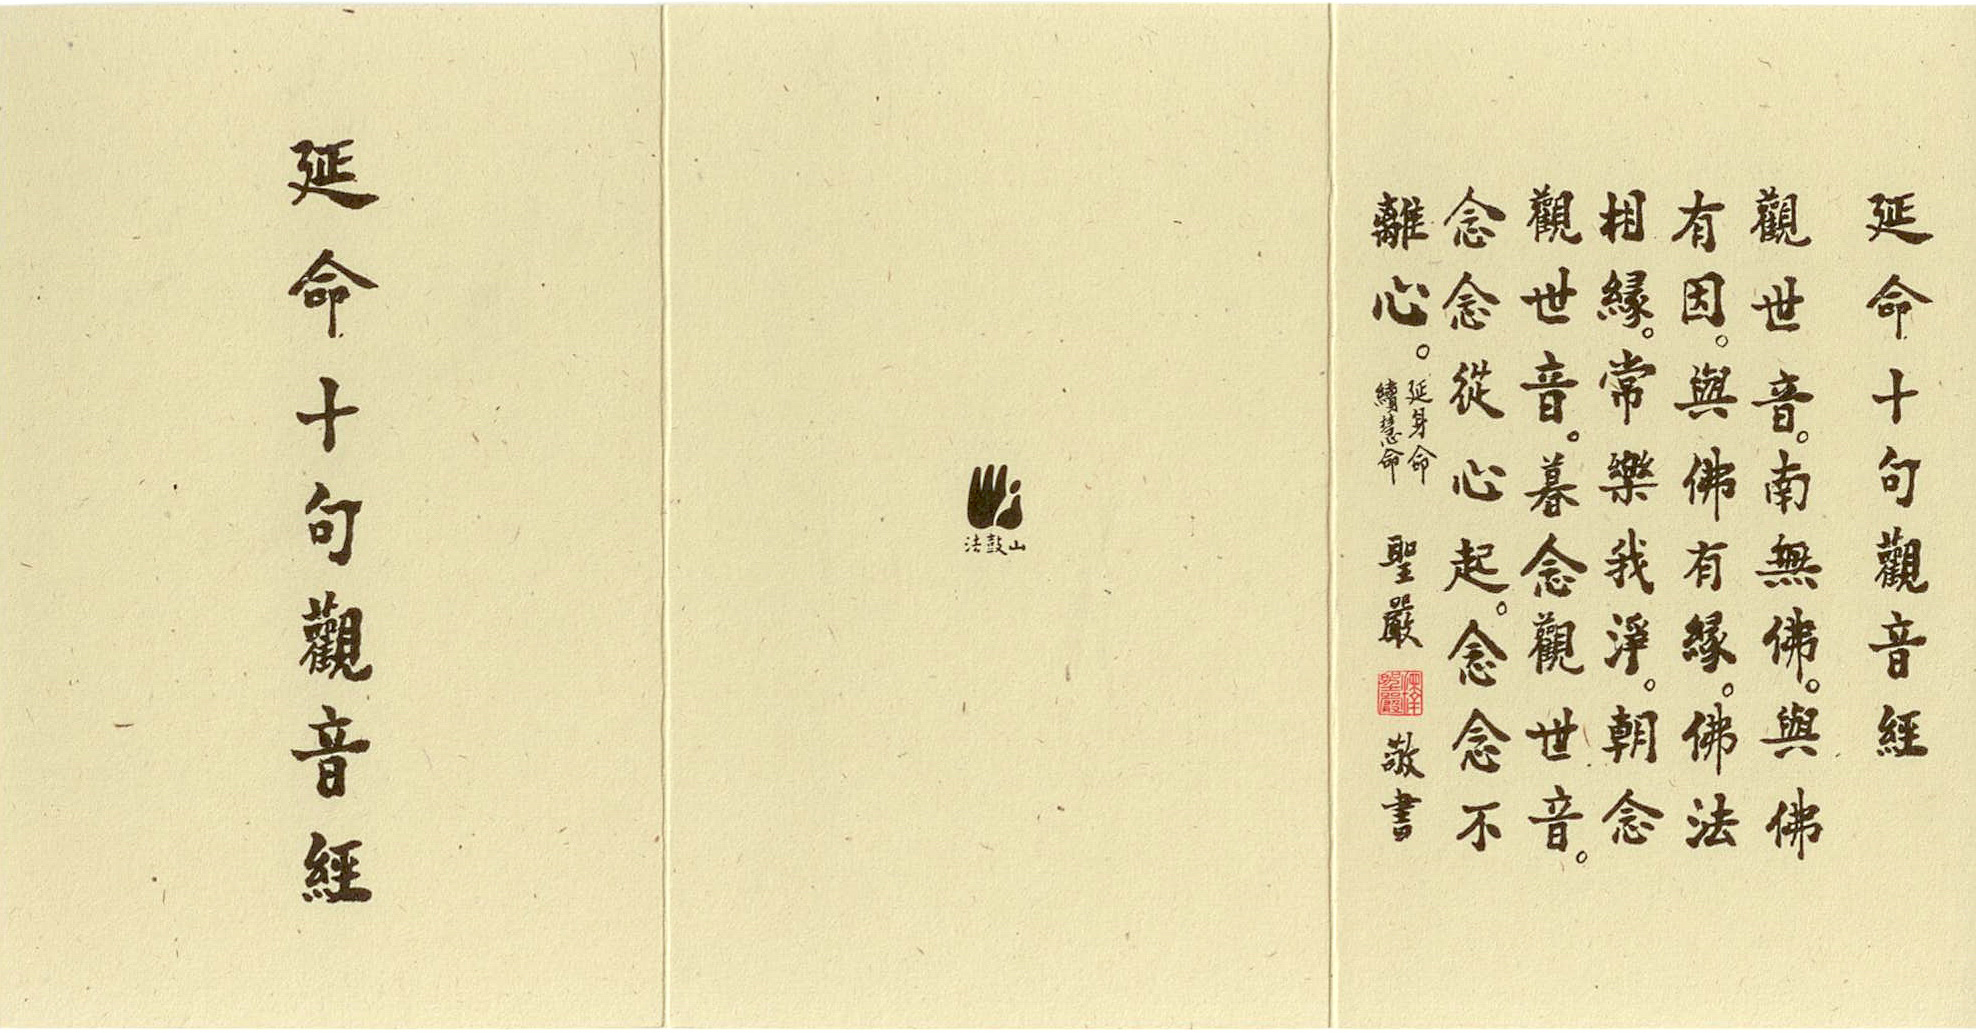 延命十句觀音經
觀世音。南無佛。與佛
有因。與佛有緣。佛法
相緣。常樂我淨。朝念
觀世音。暮念觀世音。
念念從心起。念念不
離心。
延身命
續慧命
聖嚴 敬書
法鼓山
延命十句觀音經